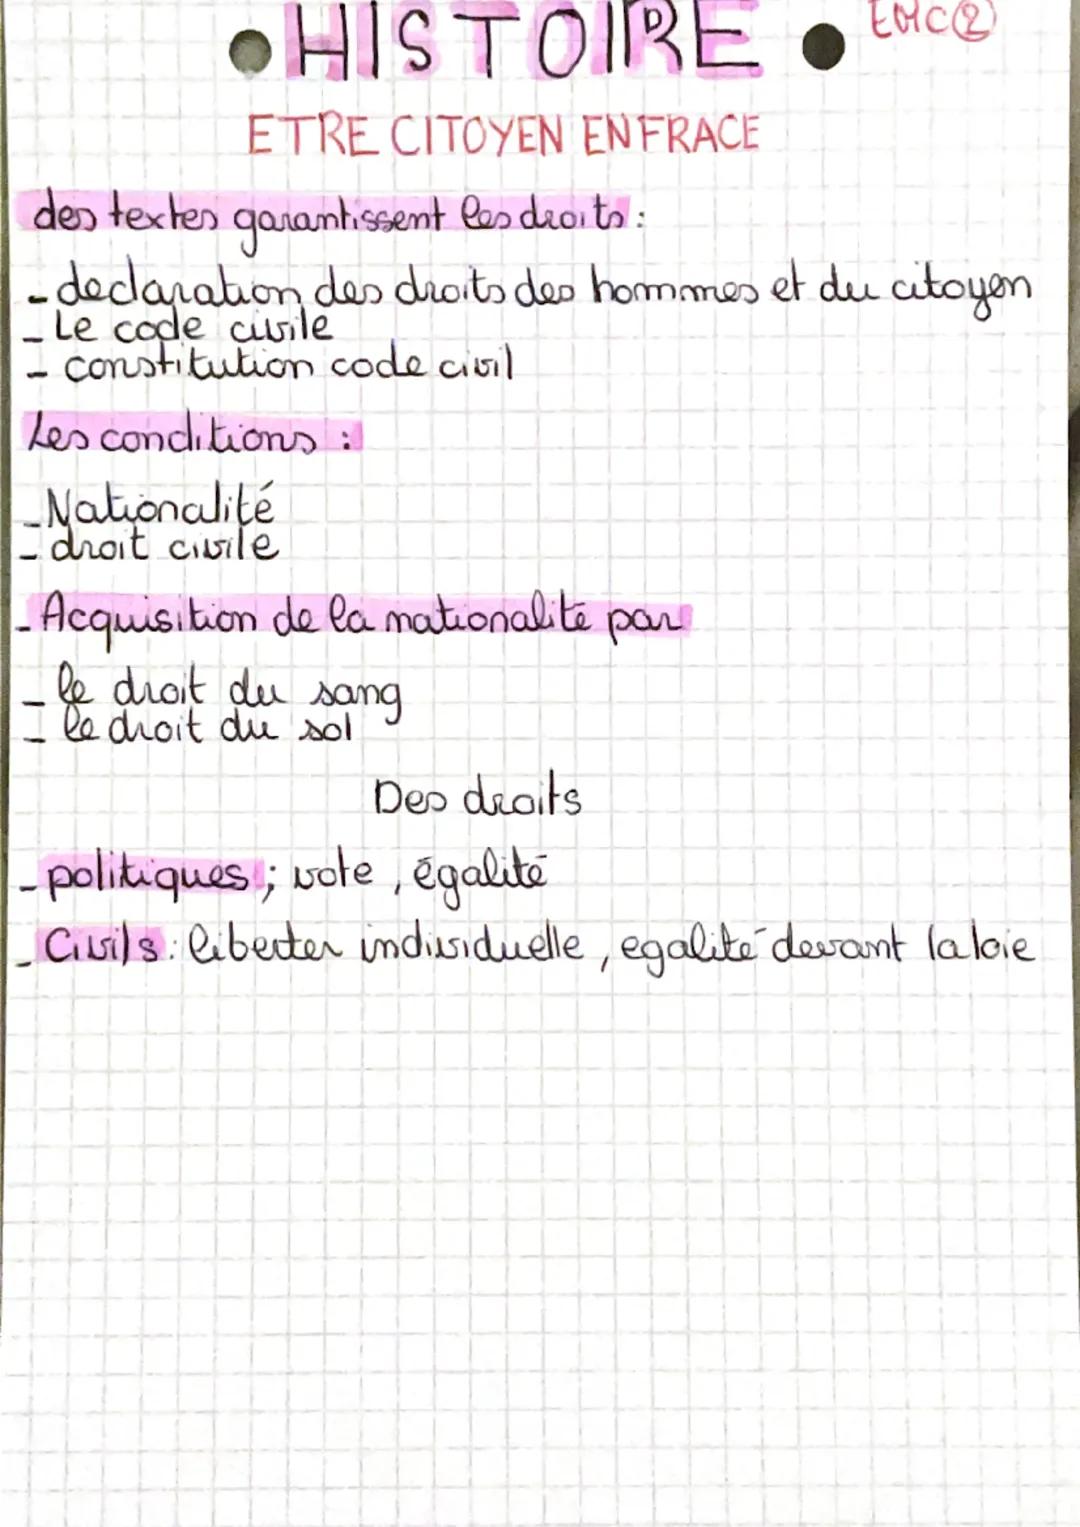 • HISTOIRE • EMC②
ETRE CITOYEN EN FRACE
des textes garantissent les droits :
- declaration des droits des hommes et du citoyen
- Le code civile
- constitution code civil
Les conditions :
- Nationalité
- droit civile
- Acquisition de la nationalité par
- le droit du sang
- le droit du sol
Des droits
- politiques ; vote , égalité
- Civils : liberter individuelle , egalité devant la loie